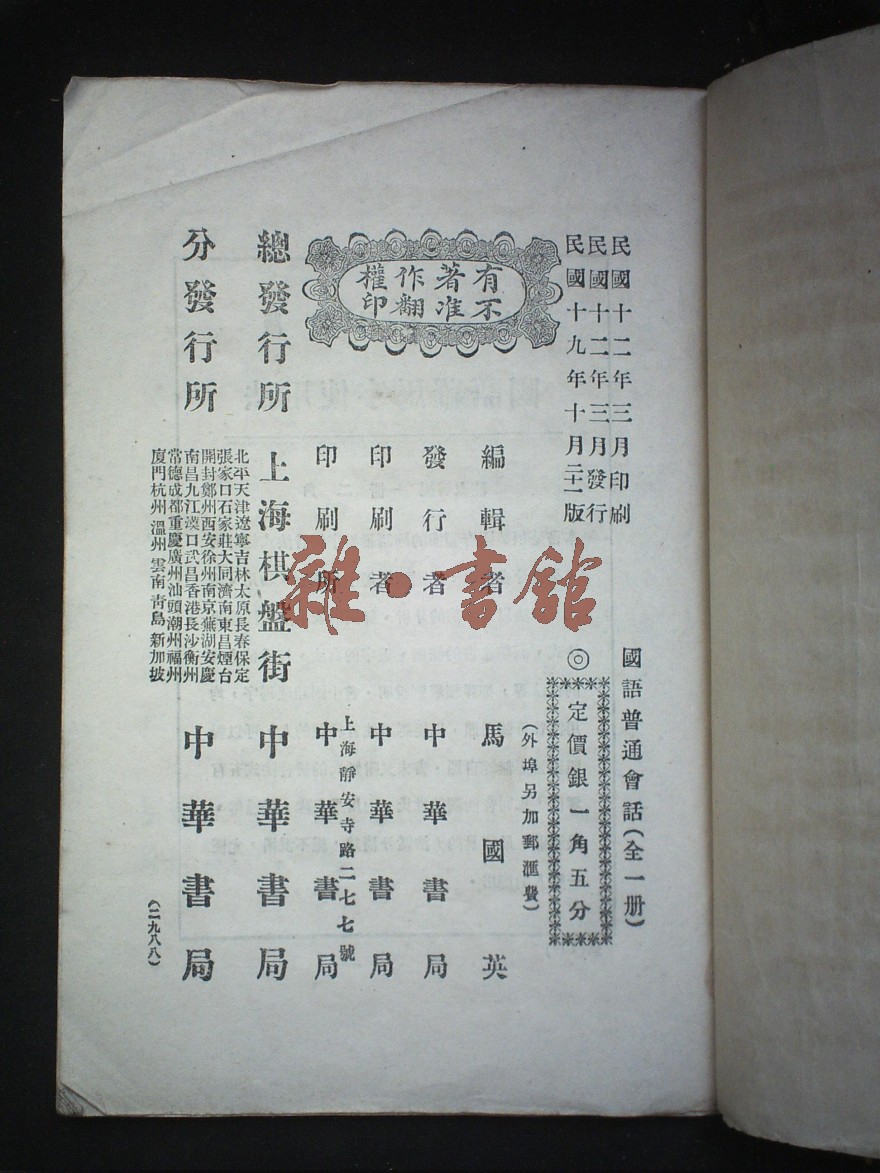 民國十二年三月印刷
民國十二年三月發行
民國十九年十月二十一版
國語普通會話（全一册）
◎定價銀一角五分
（外埠另加郵滙費）
有著作權
不准翻印
編輯者 馬國英
發行者 中華書局
印刷者 中華書局
上海靜安寺路二七七號
印刷所 中華書局
總發行所 上海棋盤街 中華書局
分發行所 中華書局
北平天津遼寧吉林太原長春保定
張家口石家莊大同濟南東昌煙台
開封鄭州西安徐州南京蕪湖安慶
南昌九江漢口武昌香港長沙衡州
常德成都重慶廣州汕頭潮州福州
廈門杭州溫州雲南青島新加坡
（二九八八）
雜·書館